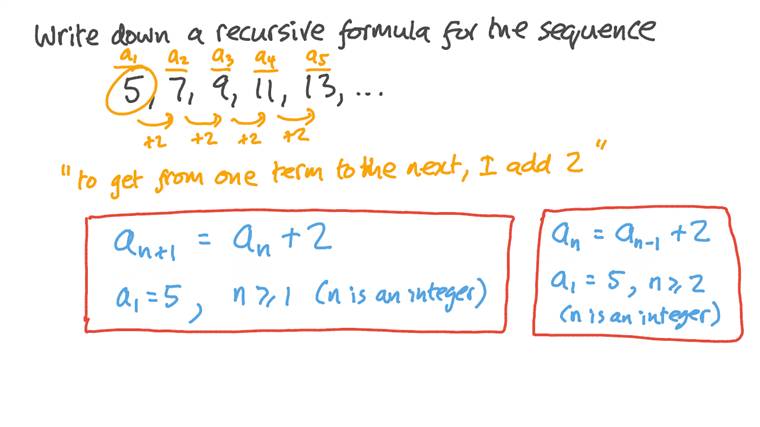 Write down a recursive formula for the sequence
a₁ a₂ a₃ a₄ a₅
5, 7, 9, 11, 13, ...
+2 +2 +2 +2
"to get from one term to the next, I add 2"
aₙ₊₁ = aₙ + 2
a₁ = 5, n ⩾ 1 (n is an integer)
aₙ = aₙ₋₁ + 2
a₁ = 5, n ⩾ 2
(n is an integer)